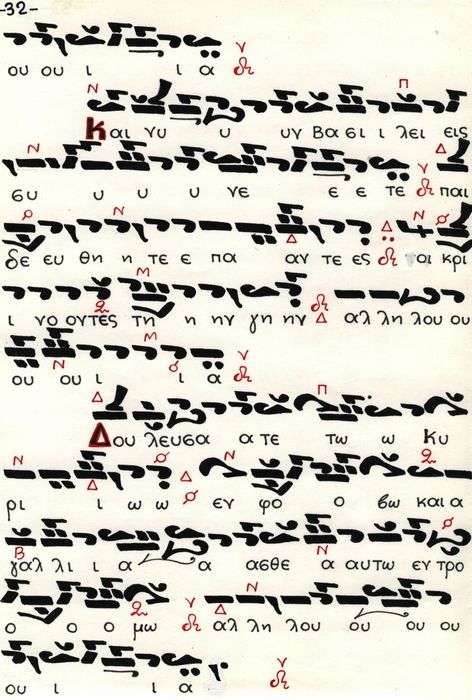 -32-
ου ου ι ι α
Και νυ υ υν βα σι ι λει εις
συ υ υ υ νε ε ε τε παι
δε ευ θη η τε ε πα αν τε ες οι κρι
ι νο ον τες τη η ην γη ην αλ λη λου ου
ου ου ι ι α
Δου λευσα α τε τω ω Κυ
ρι ι ω ω εν φο ο βω και α
γαλ λι ι α α ασθε α αυτω εν τρο
ο ο ο μω αλ λη λου ου ου ου
ου ι ι α